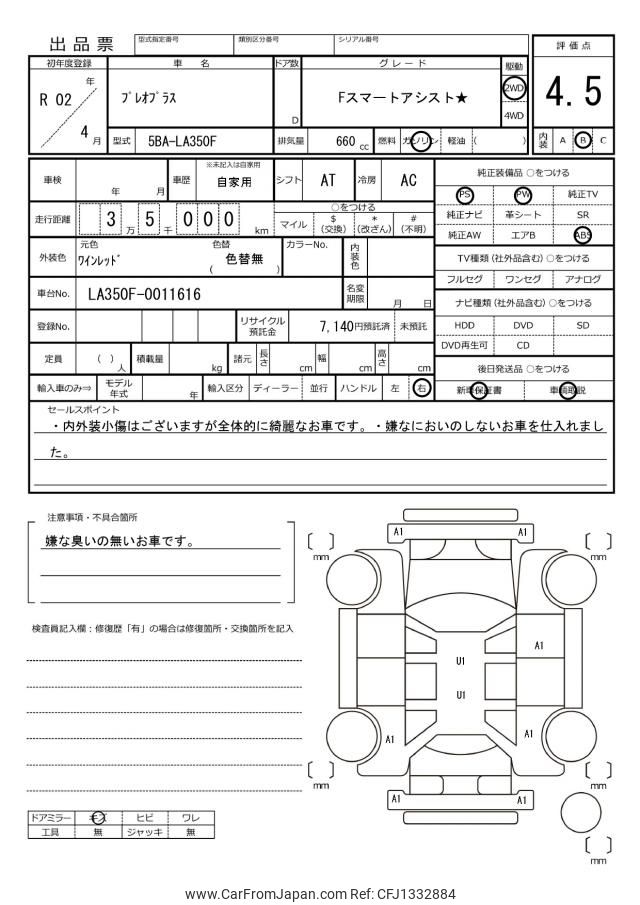 出品票
型式指定番号 類別区分番号 シリアル番号
評価点
4.5
初年度登録 車名 ドア数 グレード 駆動
R 02 年 4 月
プレオプラス
D
Fスマートアシスト★
2WD
4WD
型式 5BA-LA350F 排気量 660 cc 燃料 ガソリン 軽油 ( )
内装 A B C
車検 年 月 車歴 ※未記入は自家用 自家用 シフト AT 冷房 AC
純正装備品 ○をつける
PS PW 純正TV
純正ナビ 革シート SR
純正AW エアB ABS
走行距離 3 万 5 千 0 0 0 km
○をつける
マイル $ (交換) * (改ざん) # (不明)
外装色 元色 ワインレッド 色替 ( 色替無 ) カラーNo. 内装色
TV種類 (社外品含む) ○をつける
フルセグ ワンセグ アナログ
車台No. LA350F-0011616 名変期限 月 日
ナビ種類 (社外品含む) ○をつける
HDD DVD SD
DVD再生可 CD
登録No. リサイクル預託金 7,140円預託済 未預託
定員 ( ) 人 積載量 kg 諸元 長さ cm 幅 cm 高さ cm
後日発送品 ○をつける
新車保証書 車輌取説
輸入車のみ⇒ モデル年式 年 輸入区分 ディーラー 並行 ハンドル 左 右
セールスポイント
・内外装小傷はございますが全体的に綺麗なお車です。・嫌なにおいのしないお車を仕入れまし
た。
注意事項・不具合箇所
嫌な臭いの無いお車です。
検査員記入欄：修復歴「有」の場合は修復箇所・交換箇所を記入
A1 A1
mm mm
A1
U1
U1
A1 A1
mm mm
A1 A1
mm
ドアミラー キズ ヒビ ワレ
工具 無 ジャッキ 無
www.CarFromJapan.com Ref: CFJ1332884